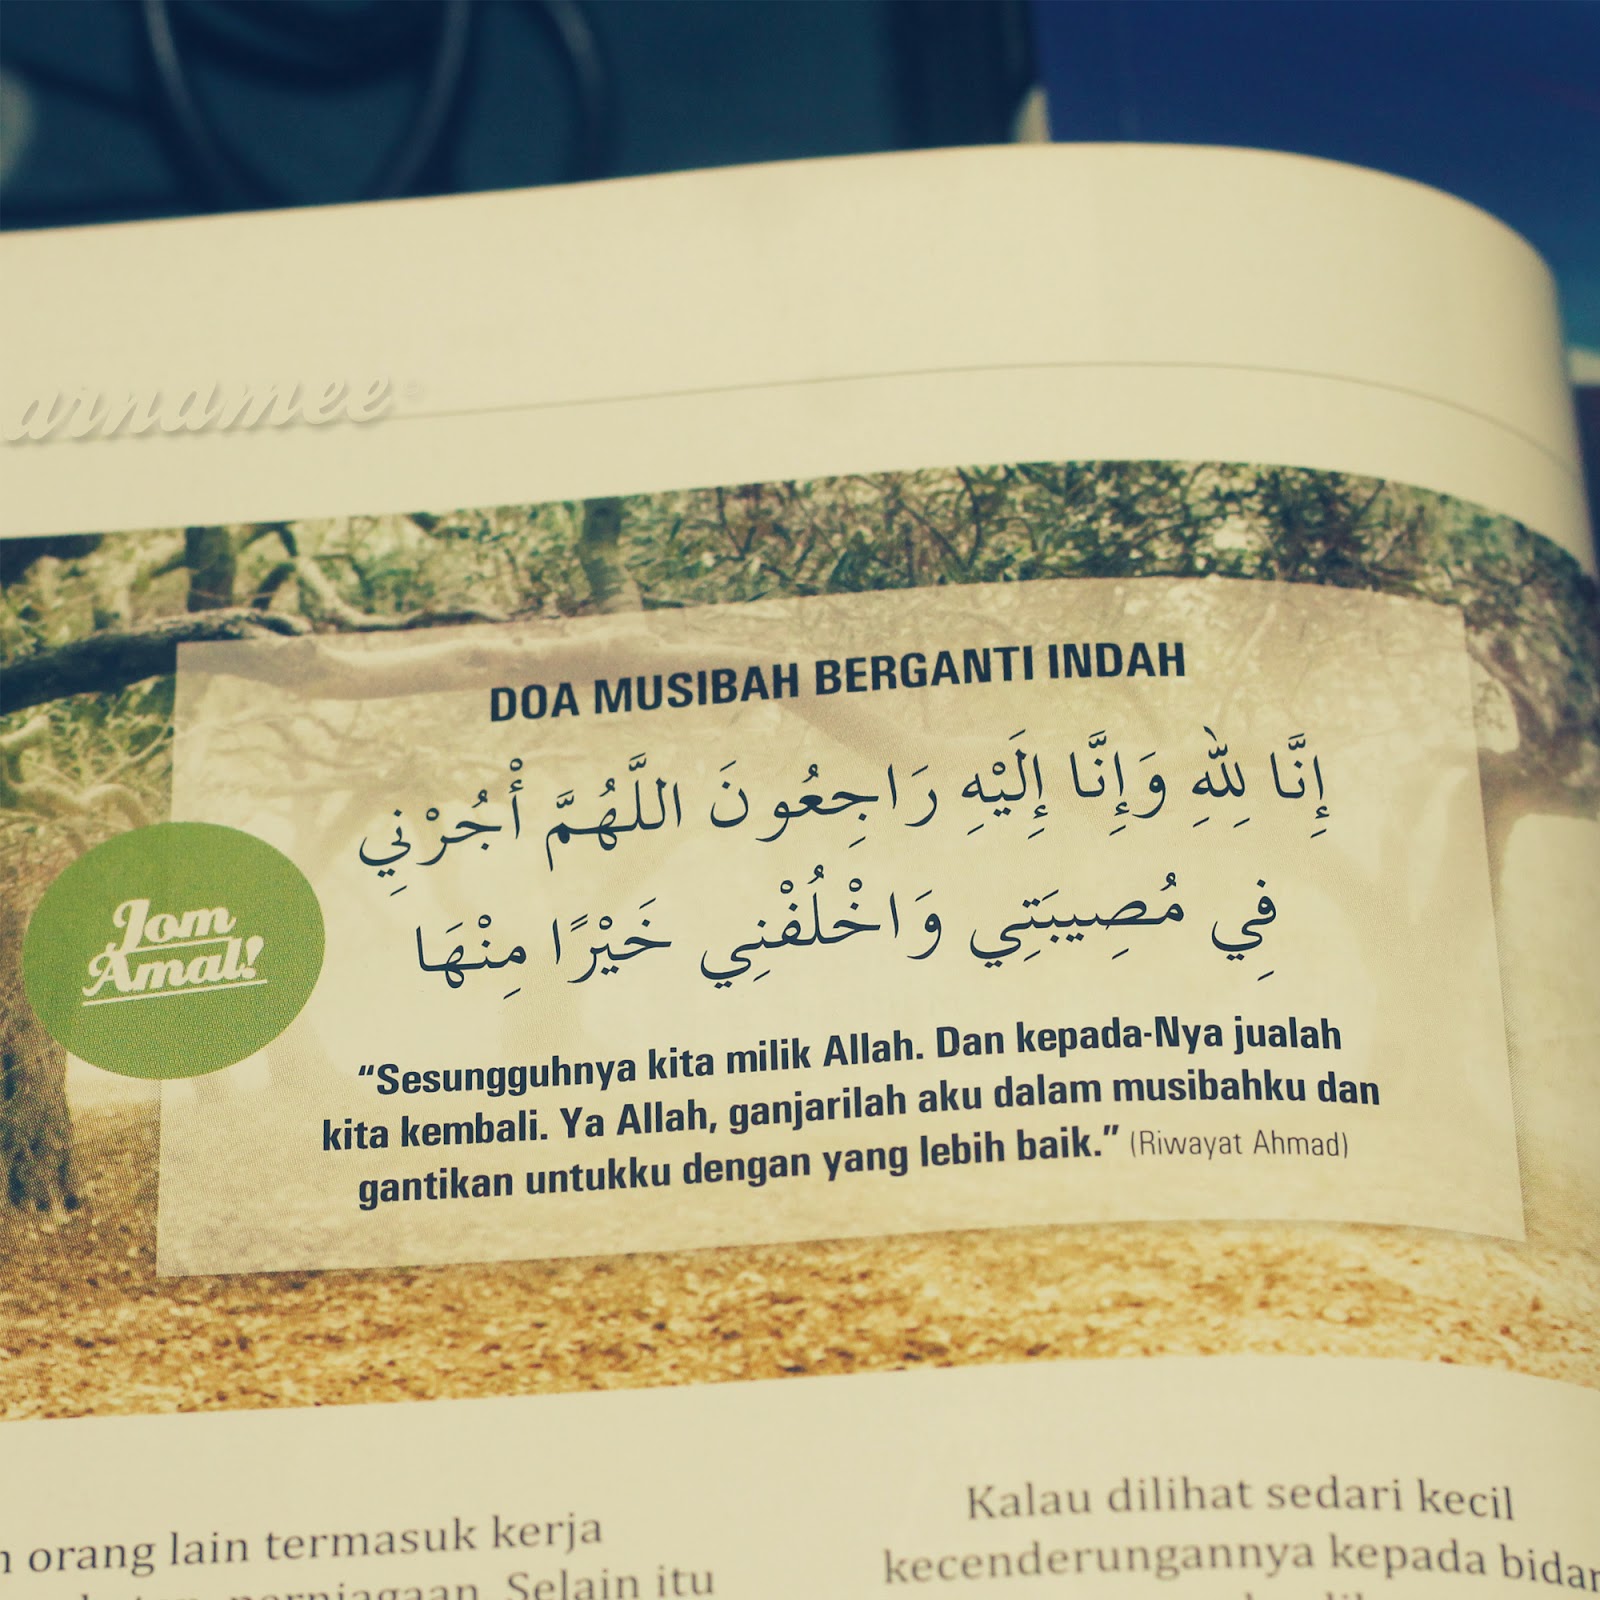 arnamee
DOA MUSIBAH BERGANTI INDAH
إِنَّا لِلّٰهِ وَإِنَّا إِلَيْهِ رَاجِعُونَ اللَّهُمَّ أْجُرْنِي
فِي مُصِيبَتِي وَاخْلُفْنِي خَيْرًا مِنْهَا
Jom
Amal!
“Sesungguhnya kita milik Allah. Dan kepada-Nya jualah
kita kembali. Ya Allah, ganjarilah aku dalam musibahku dan
gantikan untukku dengan yang lebih baik.” (Riwayat Ahmad)
orang lain termasuk kerja
perniagaan. Selain itu
Kalau dilihat sedari kecil
kecenderungannya kepada bidan